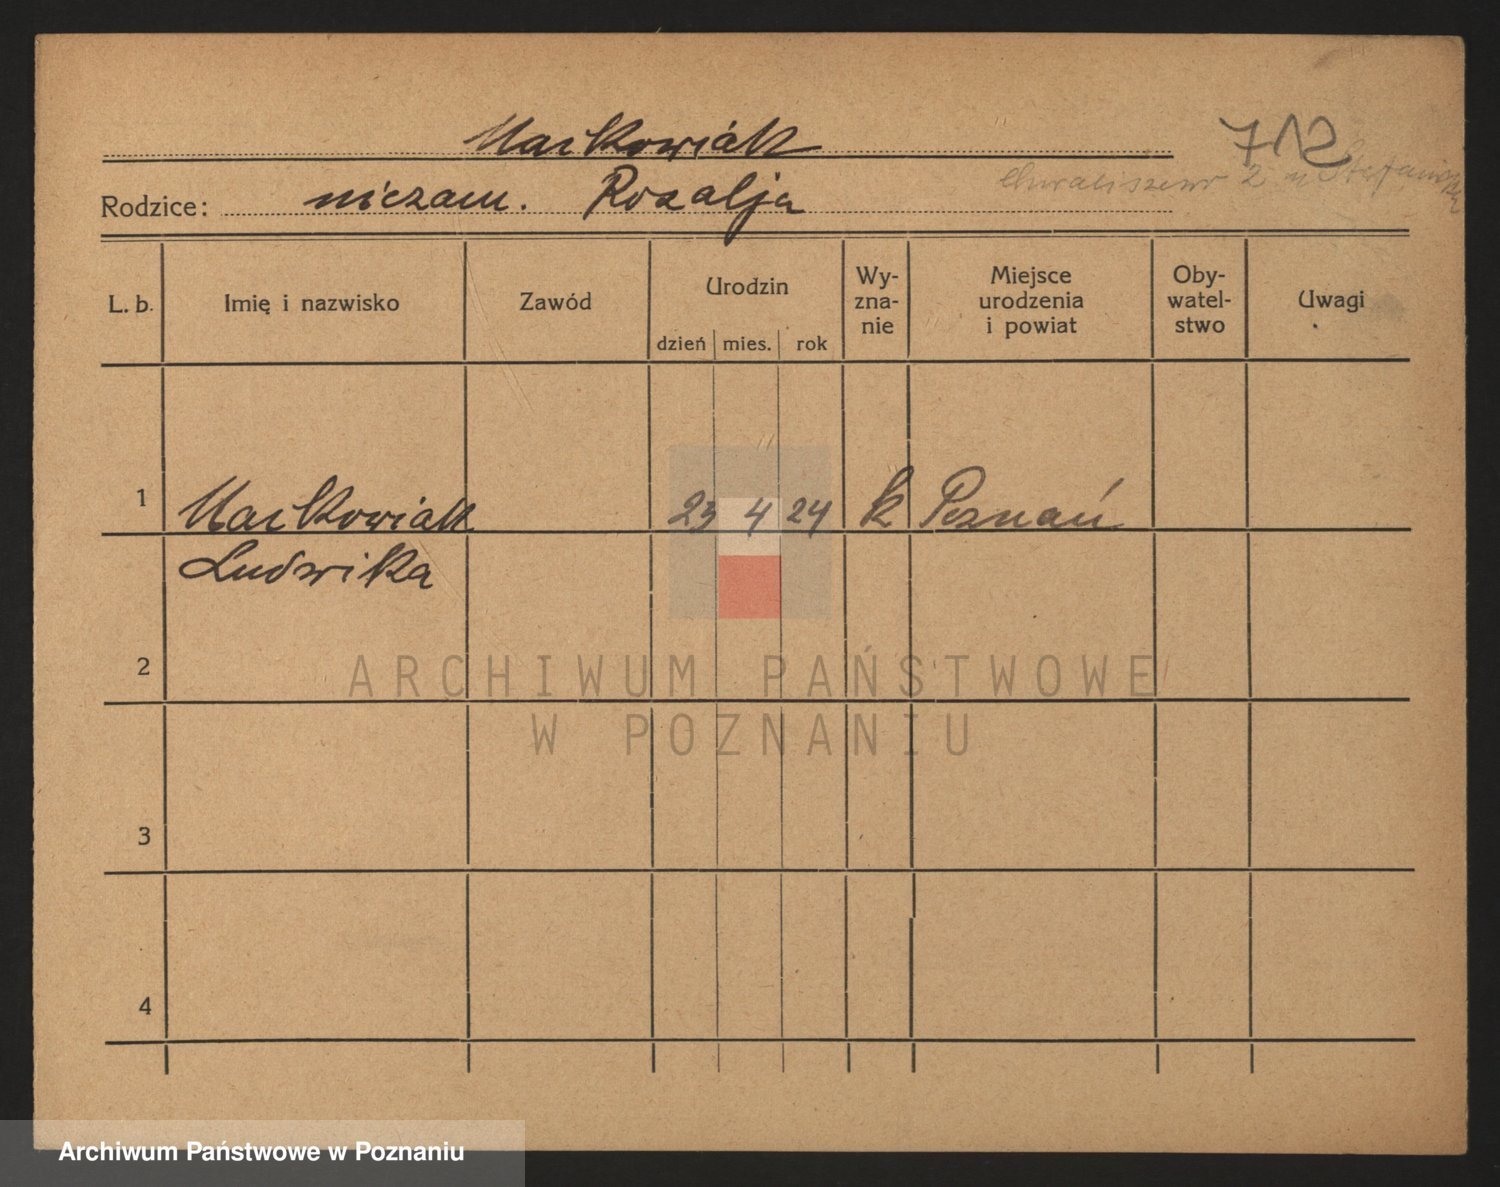 Markowiak
712
Chwaliszewo 2 u Stefaniak
Rodzice: niezam. Rozalja
L. b. Imię i nazwisko Zawód Urodzin Wy- Miejsce Oby- Uwagi
zna- urodzenia watel-
nie i powiat stwo
dzień mies. rok
1 Markowiak 23 4 24 k Poznań
Ludwika
2
ARCHIWUM PAŃSTWOWE
W POZNANIU
3
4
Archiwum Państwowe w Poznaniu